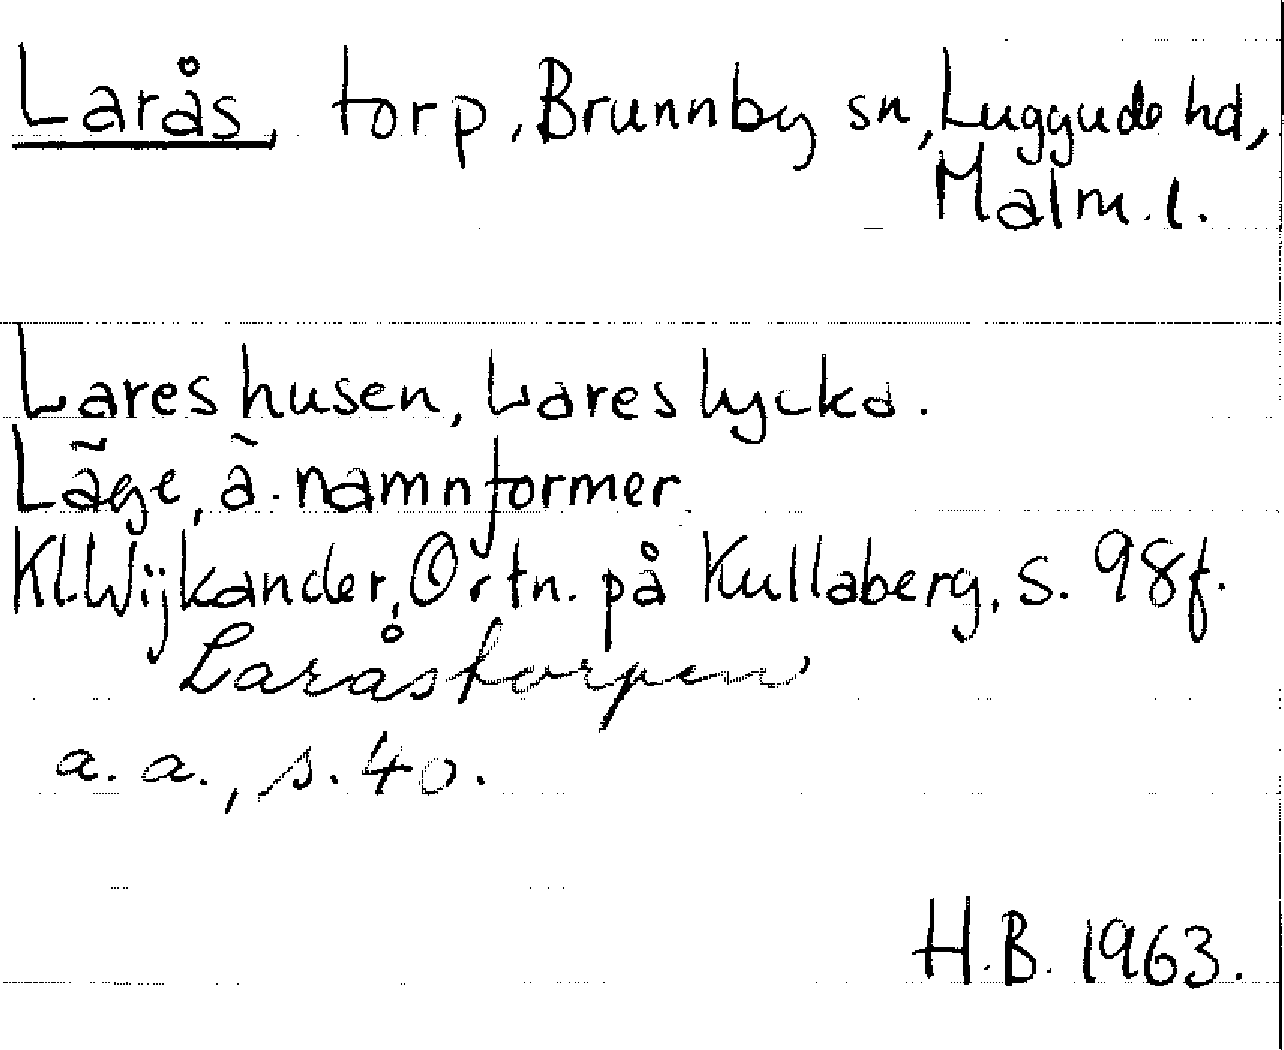 Larås, torp, Brunnby sn, Luggude hd,
Malm. l.
Lareshusen, Lareslycka.
Läge, ä. namnformer
Kl. Wijkander, Ortn. på Kullaberg, s. 98f.
Laråstorpen
a. a., s. 40.
H.B. 1963.